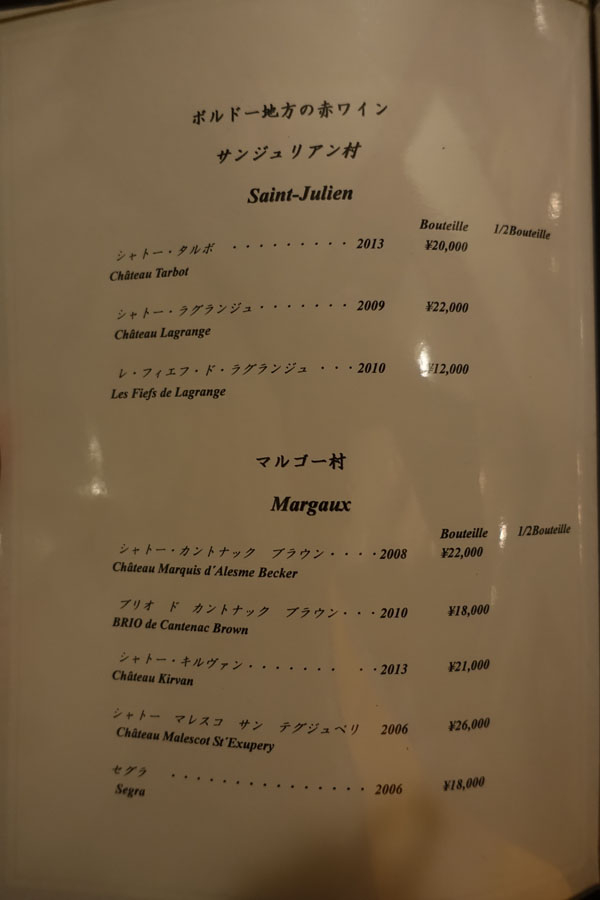 ボルドー地方の赤ワイン
サンジュリアン村
Saint-Julien
Bouteille 1/2Bouteille
シャトー・タルボ ・・・・・・・・・ 2013 ¥20,000
Château Tarbot
シャトー・ラグランジュ・・・・・・・ 2009 ¥22,000
Château Lagrange
レ・フィエフ・ド・ラグランジュ ・・・2010 ¥12,000
Les Fiefs de Lagrange
マルゴー村
Margaux
Bouteille 1/2Bouteille
シャトー・カントナック ブラウン・・・・2008 ¥22,000
Château Marquis d´Alesme Becker
ブリオ ド カントナック ブラウン・・・2010 ¥18,000
BRIO de Cantenac Brown
シャトー・キルヴァン・・・・・・・ ・・2013 ¥21,000
Château Kirvan
シャトー マレスコ サン テグジュペリ 2006 ¥26,000
Château Malescot St´Exupery
セグラ ・・・・・・・・・・・・・・・ 2006 ¥18,000
Segra